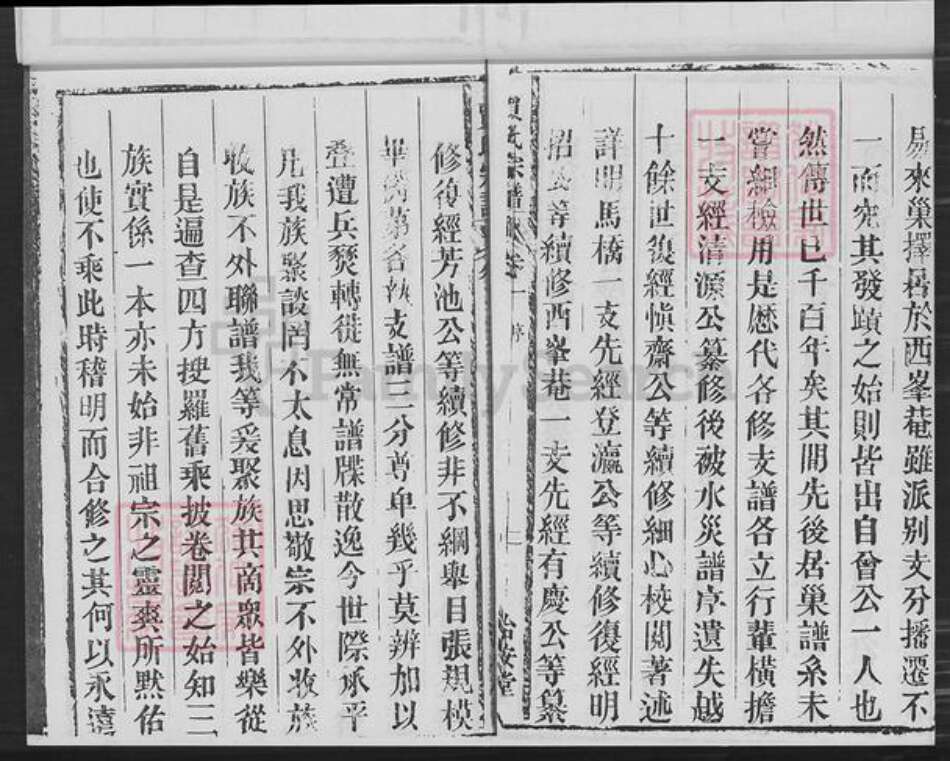 易來巢擇居於西峯菴雖派别支分播遷不
一而究其發蹟之始則皆出自曾公一人也
然傳世已千百年矣其間先後居巢譜系未
嘗細檢用是歷代各修支譜各立行輩橫擔
一支經清源公纂修後被水災譜序遺失越
十餘世復經慎齋公等續修細心校閲著述
詳明馬橋一支先經登瀛公等續修復經明
招公等續修西峯菴一支先經有慶公等纂
賈氏宗譜 卷一 序
治安堂
修後經芳池公等續修非不綱舉目張規模
畢 第各執支譜三分尊卑幾乎莫辨加以
叠遭兵燹轉徙無常譜牒散逸今世際承平
凡我族聚談罔不太息因思敬宗不外收族
收族不外聯譜我等爰聚族其商衆皆樂從
自是遍查四方搜羅舊乘披卷閲之始知三
族實係一本亦未始非祖宗之靈爽所黙佑
也使不乘此時稽明而合修之其何以永遠
FamilySearch